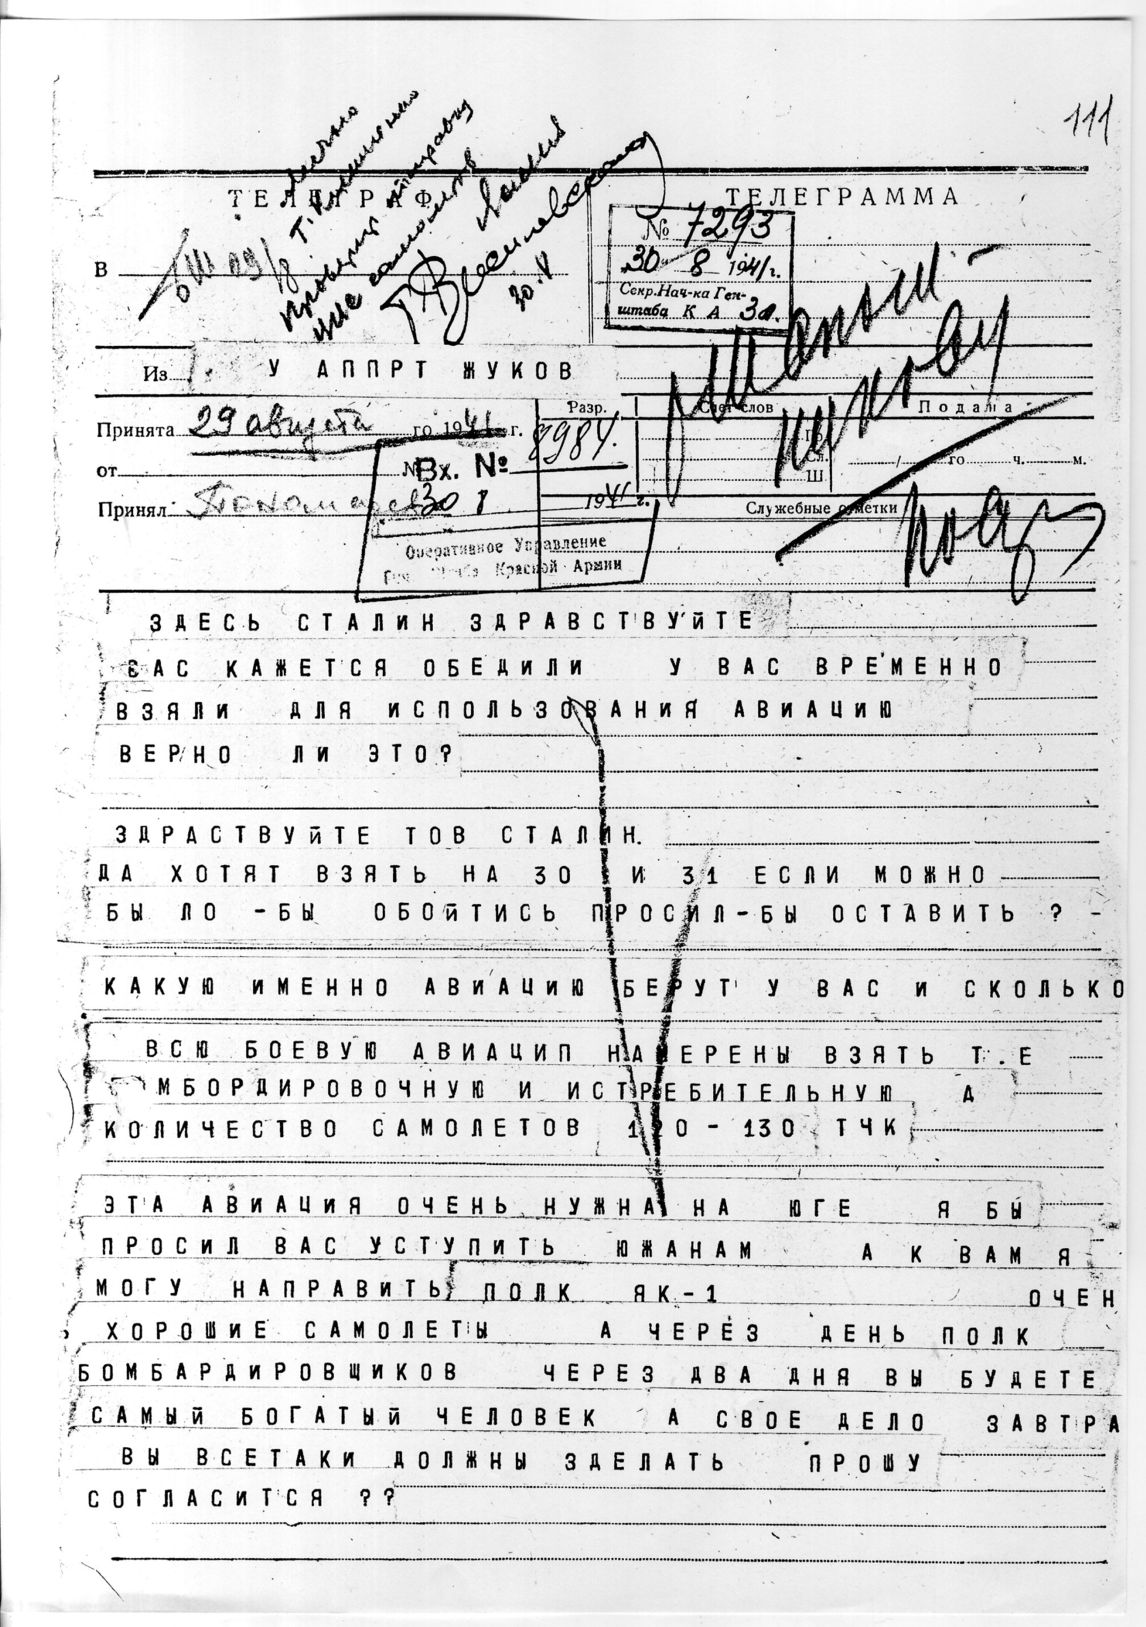 111
ТЕЛЕГРАФ
ТЕЛЕГРАММА
Лично
Т.
самолетов
Василевский
30.8
№ 7293
30 8 1941 г.
Секр. Нач-ка Ген-
штаба К А
В
Из У АППРТ ЖУКОВ
Принята 29 августа го 1941 г.
Разр.
Счет слов
Подана
Гр.
Сл.
Ш.
го ч. м.
от №
Вх. № 8984.
30 8 1941 г.
Принял Пономарева
Служебные отметки
Оперативное Управление
Ген Штаба Красной Армии
ЗДЕСЬ СТАЛИН ЗДРАВСТВУЙТЕ
ВАС КАЖЕТСЯ ОБЕДИЛИ У ВАС ВРЕМЕННО
ВЗЯЛИ ДЛЯ ИСПОЛЬЗОВАНИЯ АВИАЦИЮ
ВЕРНО ЛИ ЭТО?
ЗДРАСТВУЙТЕ ТОВ СТАЛИН.
ДА ХОТЯТ ВЗЯТЬ НА 30 И 31 ЕСЛИ МОЖНО
БЫ ЛО -БЫ ОБОЙТИСЬ ПРОСИЛ-БЫ ОСТАВИТЬ ? -
КАКУЮ ИМЕННО АВИАЦИЮ БЕРУТ У ВАС И СКОЛЬКО
ВСЮ БОЕВУЮ АВИАЦИП НАМЕРЕНЫ ВЗЯТЬ Т.Е
МБОРДИРОВОЧНУЮ И ИСТРЕБИТЕЛЬНУЮ А
КОЛИЧЕСТВО САМОЛЕТОВ 120-130 ТЧК
ЭТА АВИАЦИЯ ОЧЕНЬ НУЖНА НА ЮГЕ Я БЫ
ПРОСИЛ ВАС УСТУПИТЬ ЮЖАНАМ А К ВАМ Я
МОГУ НАПРАВИТЬ ПОЛК ЯК-1 ОЧЕН
ХОРОШИЕ САМОЛЕТЫ А ЧЕРЕЗ ДЕНЬ ПОЛК
БОМБАРДИРОВЩИКОВ ЧЕРЕЗ ДВА ДНЯ ВЫ БУДЕТЕ
САМЫЙ БОГАТЫЙ ЧЕЛОВЕК А СВОЕ ДЕЛО ЗАВТРА
ВЫ ВСЕТАКИ ДОЛЖНЫ ЗДЕЛАТЬ ПРОШУ
СОГЛАСИТСЯ ??